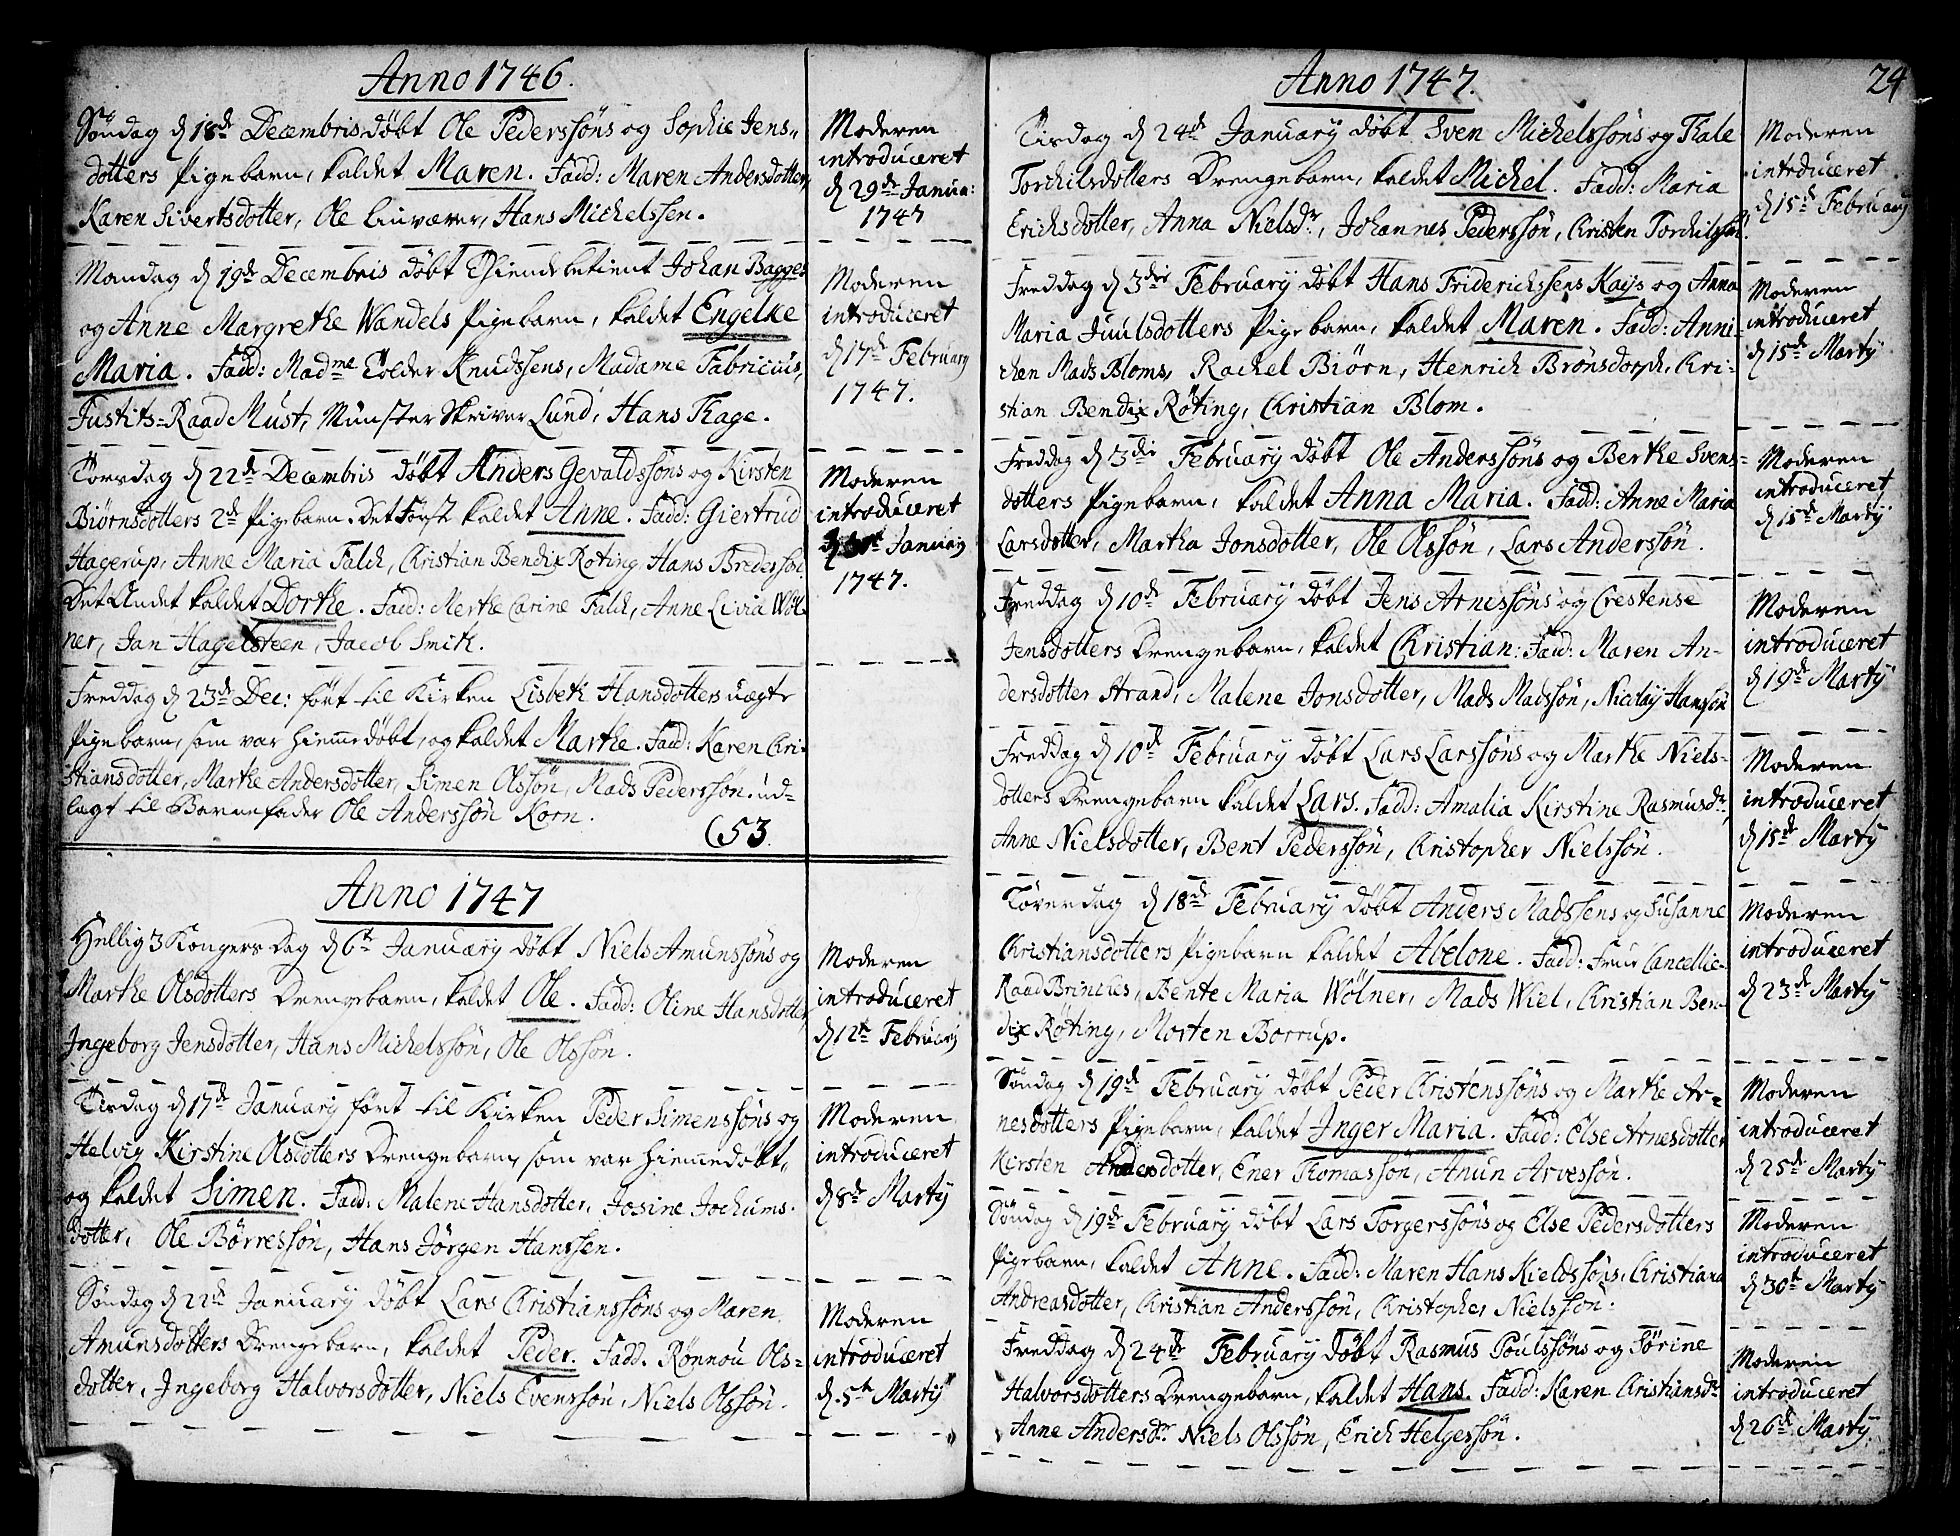 Anno 1746.
Søndag d 18de Decembris døbt Ole Pederssøns og Sophie Jens-
dotters Pigebarn, kaldet Maren. Fadd: Maren Andersdotter,
Karen Sivertsdotter, Ole Linværer, Hans Michelssen.
Moderen
introduceret
d 29de Janua:
1747
Mandag d 19de Decembris døbt Thiendebetient Johan Bagges
og Anne Margrethe Wandels Pigebarn, kaldet Engelke
Maria. Fadd: Madme Tolder Knudssens, Madame Fabricius,
Justits-Raad Must, Münster Skriver Lund, Hans Thage.
Moderen
introduceret
d 17de February
1747.
Torsdag d 22de Decembris døbt Anders Gevaldssøns og Kirsten
Biørnsdotters 2de Pigebarn. Det Først kaldet Anne. Fadd: Giertrud
Hagerup, Anne Maria Falch, Christian Bendix Røting, Hans Brederssøn.
Det Andet kaldet Dorthe. Fadd: Merthe Carine Falch, Anne Livia Wøl-
ner, Jan Hagelsteen, Jacob Smith.
Moderen
introduceret
January
1747.
Freddag d 23de Dec: ført til Kirken Lisbeth Hansdotters uægte
Pigebarn, som var hiemmedøbt, og kaldet Marthe. Fadd: Karen Chri-
stiansdotter, Marthe Andersdotter, Simen Olssøn, Mads Pederssøn. ud-
lagt til Barnefader Ole Anderssøn Korn.
(53.
Anno 1747
Hellig 3 Kongers Dag d 6te January døbt Niels Amunssøns og
Marthe Olsdotters Drengebarn, kaldet Ole. Fadd: Oline Hansdotter,
Ingeborg Jensdotter, Hans Michelssøn, Ole Olssøn.
Moderen
introduceret
d 12te February
Tirsdag d 17de January ført til Kirken Peder Simenssøns og
Helvig Kirstine Olsdotters Drengebarn, som var hiemmedøbt,
og kaldet Simen. Fadd: Malene Hansdotter, Josine Jochums-
dotter, Ole Børressøn, Hans Jørgen Hanssen.
Moderen
introduceret
d 8de Martÿ
Søndag d 22de January døbt Lars Christianssøns og Maren
Amunsdotters Drengebarn, kaldet Peder. Fadd. Rønnou Ols-
dotter, Ingeborg Halvorsdotter, Niels Evenssøn, Niels Olssøn.
Moderen
introduceret
d. 5te Martÿ
Anno 1747.
24
Tirsdag d 24de January døbt Sven Michelssøns og Thale
Torchilsdotters Drengebarn, kaldet Michel. Fadd: Maria
Erichsdotter, Anna Nielsdr, Johannes Pederssøn, Christen Torchilssøn.
Moderen
introduceret
d 15de February
Freddag d 3die February døbt Hans Friderichssens Kays og Anna
Maria Juulsdotters Pigebarn, kaldet Maren. Fadd: Anni
chen Mads Bloms, Rachel Biørn, Henrich Brønsdorph, Chri-
stian Bendix Røting, Christian Blom.
Moderen
introduceret
d 15de Martÿ
Freddag d 3die February døbt Ole Anderssøns og Berthe Svens-
dotters Pigebarn, kaldet Anna Maria. Fadd: Anne Maria
Larsdotter, Martha Jonsdotter, Ole Olssøn, Lars Anderssøn.
Moderen
introduceret
d 15de Martÿ
Freddag d 10de February døbt Jens Arnessøns og Crestense
Jensdotters Drengebarn, kaldet Christian: Fadd: Maren An-
dersdotter Strand, Malene Jonsdotter, Mads Madssøn, Nicolaÿ Hanssøn
Moderen
introduceret
d 19de Martÿ
Freddag d 10de February døbt Lars Larssøns og Marthe Niels-
dotters Drengebarn kaldet Lars. Fadd: Amalia Kirstine Rasmusdr,
Anne Nielsdotter, Bent Pederssøn, Christopher Nielssøn.
Moderen
introduceret
d 15de Martÿ
Løverdag d 18de February døbt Anders Madssens og Susanne
Christiansdotters Pigebarn kaldet Abelone. Fadd: Frue Cancellie-
Raad Brinches, Bente Maria Wølner, Mads Wiel, Christian Ben-
dix Røting, Morten Borrup.
Moderen
introduceret
d 23de Martÿ
Søndag d 19de February døbt Peder Christenssøns og Marthe Ar-
nesdotters Pigebarn, kaldet Inger Maria. Fadd: Else Arnesdotter
Kirsten Andersdotter, Ener Thomassøn, Anun Arvessøn.
Moderen
introduceret
d 25de Martÿ
Søndag d 19de February døbt Lars Torgerssøns og Else Pedersdotters
Pigebarn, kaldet Anne. Fadd: Maren Hans Kieldssøns, Christiana
Andreasdotter, Christian Anderssøn, Christopher Nielssøn.
Moderen
introduceret
d 30te Martÿ
Freddag d 24de February døbt Rasmus Poulssøns og Sørine
Halvorsdotters Drengebarn, kaldet Hans. Fadd: Karen Christiansdr
Anne Andersdr. Niels Olssøn, Erich Helgessøn.
Moderen
introduceret
d 26de Martÿ